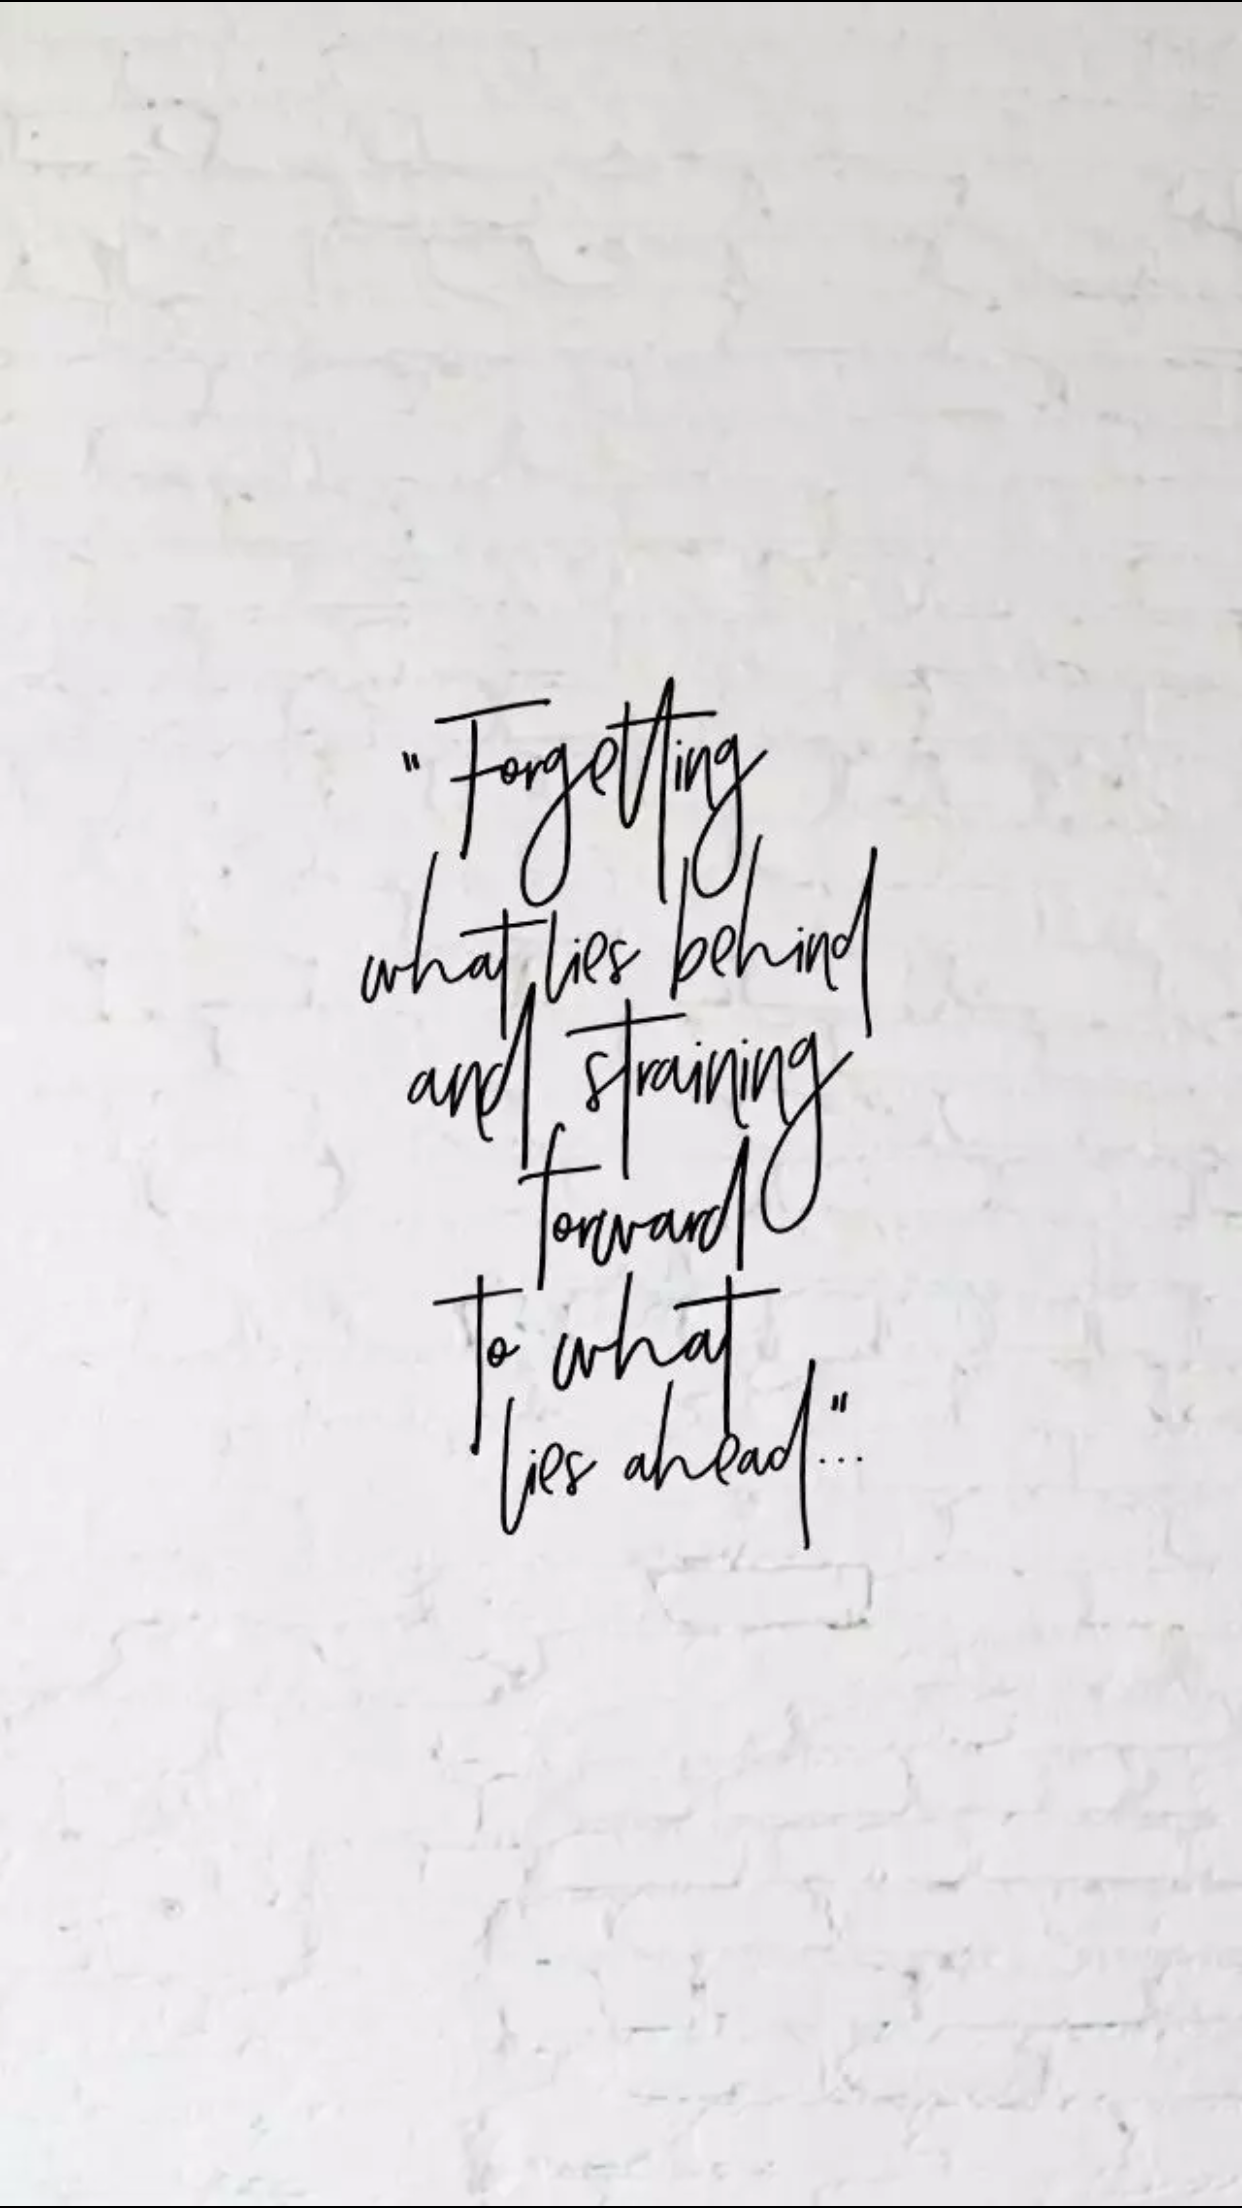 "Forgetting
what lies behind
and straining
forward
to what
lies ahead"...